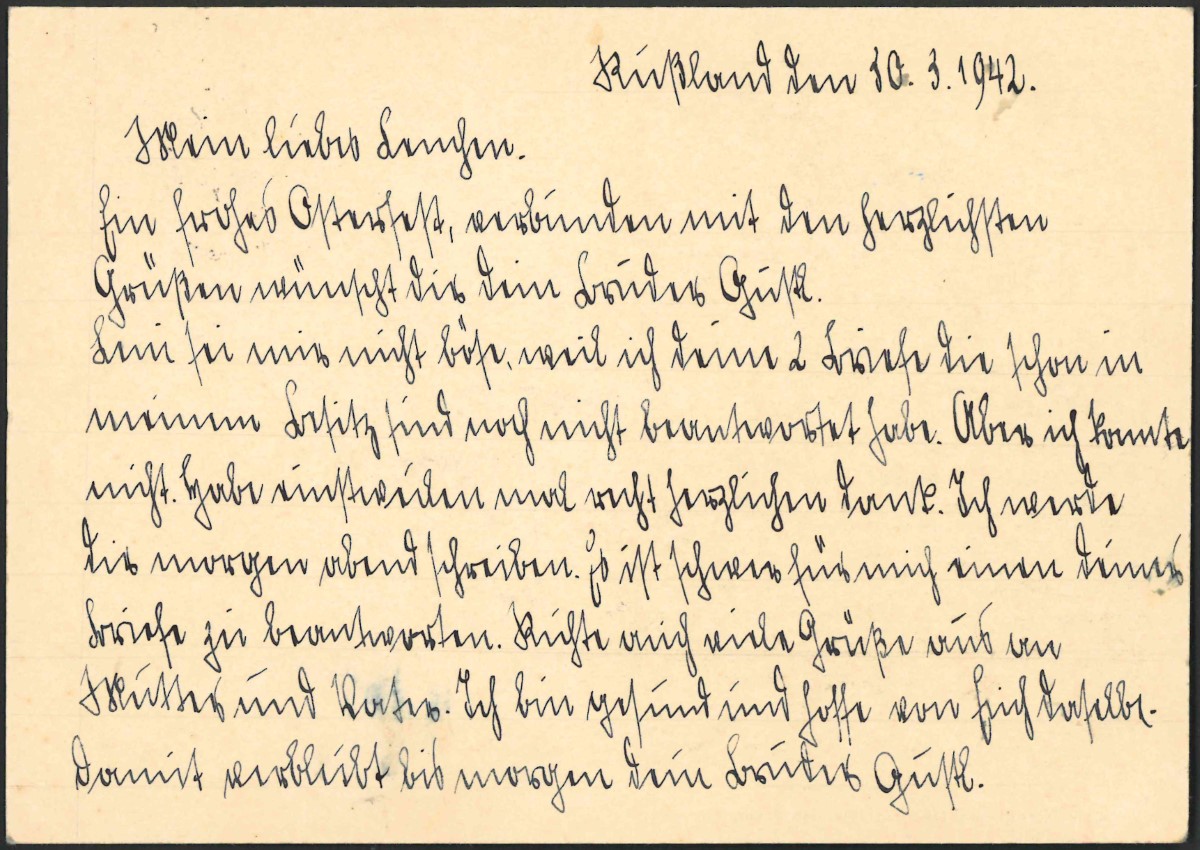 Rußland den 30. 3. 1942.
Mein liebes Lenchen.
Ein frohes Osterfest, verbunden mit den herzlichsten
Grüßen wünscht dir dein Bruder Gustl.
Leni sei mir nicht böse, weil ich deine 2 Briefe die schon in
meinem Besitz sind noch nicht beantwortet habe. Aber ich konnte
nicht. Habe einstweilen mal recht herzlichen dank. Ich werde
dir morgen abend schreiben. Es ist schwer für mich einen deiner
Briefe zu beantworten. Richte auch viele Grüße aus an
Mutter und Vater. Ich bin gesund und hoffe von Euch daselbe.
Damit verbleibt bis morgen dein Bruder Gustl.